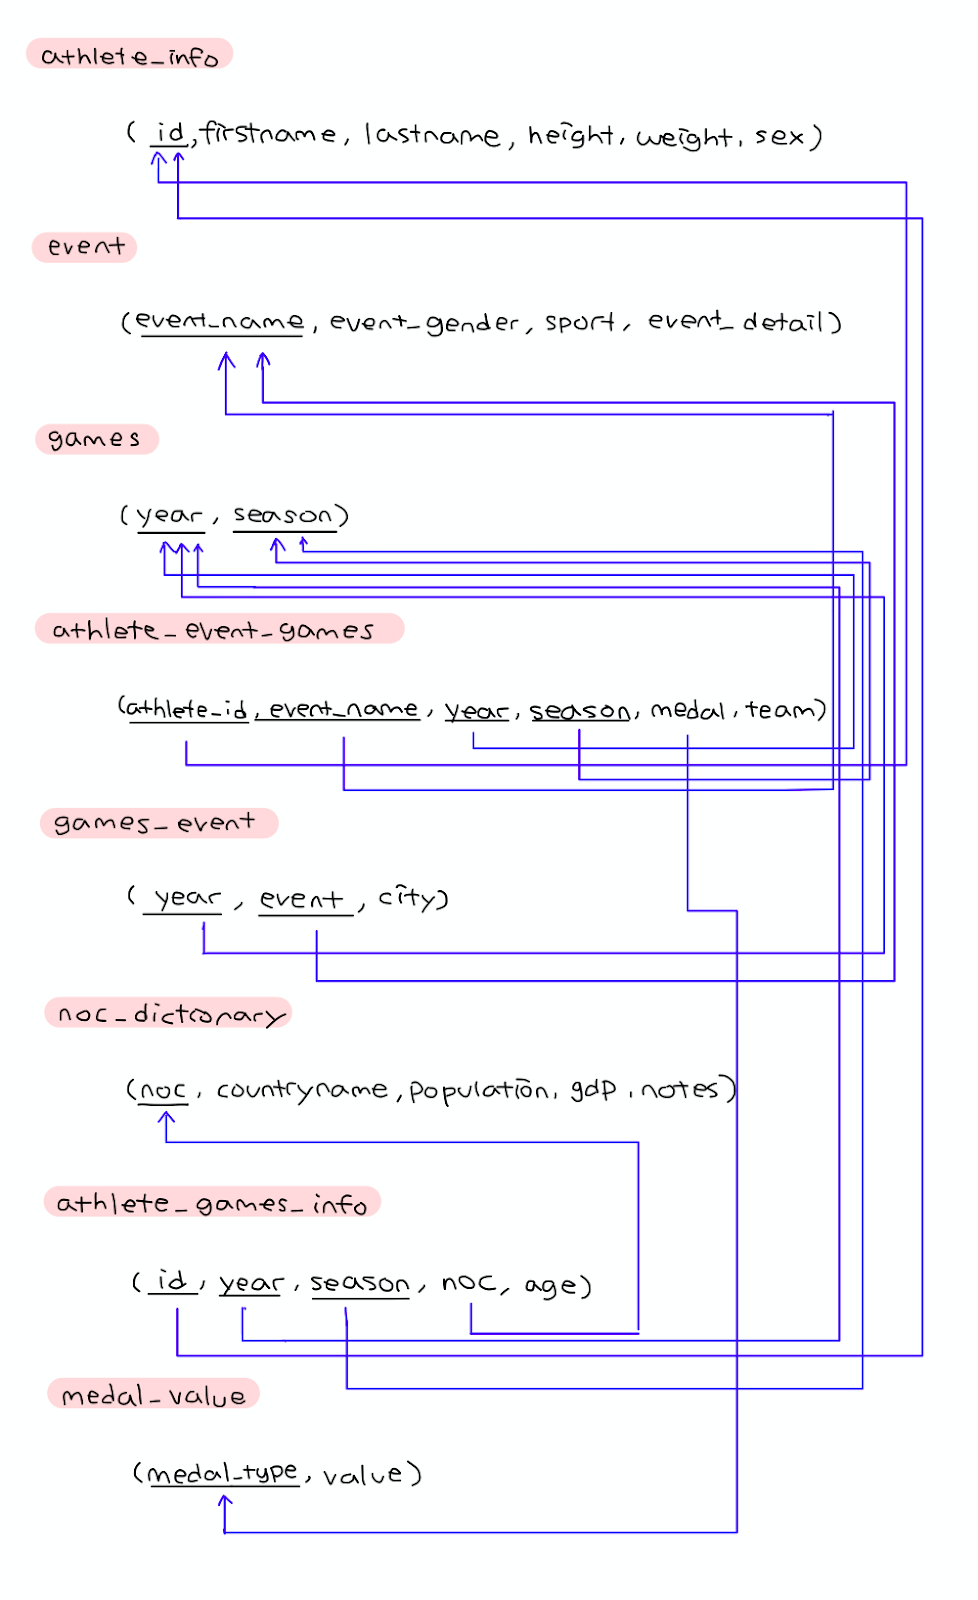 athlete_info
( id, firstname, lastname, height, weight, sex)
event
(event_name, event_gender, sport, event_detail)
games
(year, season)
athlete_event_games
(athlete_id, event_name, year, season, medal, team)
games_event
( year, event, city)
noc_dictionary
(noc, countryname, population, gdp, notes)
athlete_games_info
( id, year, season, noc, age)
medal_value
(medal_type, value)